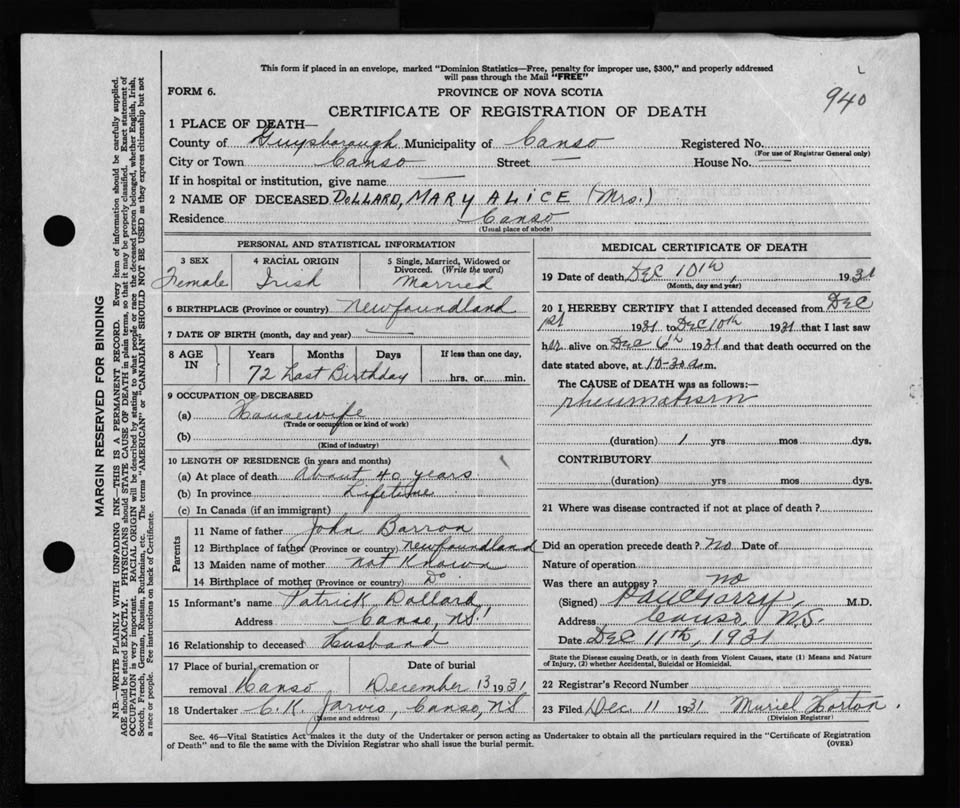 This form if placed in an envelope, marked "Dominion Statistics—Free, penalty for improper use, $300," and properly addressed
will pass through the Mail "FREE"
FORM 6. PROVINCE OF NOVA SCOTIA 940
CERTIFICATE OF REGISTRATION OF DEATH
1 PLACE OF DEATH—
County of Guysborough Municipality of Canso Registered No.
(For use of Registrar General only)
City or Town Canso Street — House No. —
If in hospital or institution, give name —
2 NAME OF DECEASED DOLLARD, MARY ALICE (Mrs.)
Residence Canso
(Usual place of abode)
PERSONAL AND STATISTICAL INFORMATION
3 SEX 4 RACIAL ORIGIN 5 Single, Married, Widowed or
Divorced. (Write the word)
Female Irish Married
6 BIRTHPLACE (Province or country) Newfoundland
7 DATE OF BIRTH (month, day and year) —
8 AGE IN Years Months Days If less than one day,
72 Last Birthday hrs. or min.
9 OCCUPATION OF DECEASED
(a) Housewife
(Trade or occupation or kind of work)
(b)
(Kind of industry)
10 LENGTH OF RESIDENCE (in years and months)
(a) At place of death About 40 years
(b) In province Lifetime
(c) In Canada (if an immigrant)
Parents
11 Name of father John Barron
12 Birthplace of father (Province or country) Newfoundland
13 Maiden name of mother not Known
14 Birthplace of mother (Province or country) Do
15 Informant's name Patrick Dollard
Address Canso, N.S.
16 Relationship to deceased Husband
17 Place of burial, cremation or Date of burial
removal Canso December 13 1931
18 Undertaker C. K. Jarvis, Canso, NS
(Name and address)
MEDICAL CERTIFICATE OF DEATH
19 Date of death DEC 10th, 1931
(Month, day and year)
20 I HEREBY CERTIFY that I attended deceased from Dec
1st 1931 to Dec 10th 1931 that I last saw
her alive on Dec 6th 1931 and that death occurred on the
date stated above, at 10-30 a.m.
The CAUSE of DEATH was as follows:—
rheumatism
(duration) 1 yrs mos dys.
CONTRIBUTORY
(duration) yrs mos dys.
21 Where was disease contracted if not at place of death?
Did an operation precede death? No Date of
Nature of operation
Was there an autopsy? no
(Signed) M.D.
Address Canso, N.S.
Date Dec 11th, 1931
State the Disease causing Death, or in death from Violent Causes, state (1) Means and Nature
of Injury, (2) whether Accidental, Suicidal or Homicidal.
22 Registrar's Record Number
23 Filed Dec. 11 1931 Muriel Horton.
(Division Registrar)
Sec. 46—Vital Statistics Act makes it the duty of the Undertaker or person acting as Undertaker to obtain all the particulars required in the "Certificate of Registration
of Death" and to file the same with the Division Registrar who shall issue the burial permit. (OVER)
MARGIN RESERVED FOR BINDING
N.B.—WRITE PLAINLY WITH UNFADING INK—THIS IS A PERMANENT RECORD. Every item of information should be carefully supplied.
AGE should be stated EXACTLY. PHYSICIANS should STATE CAUSE OF DEATH in plain terms, so that it may be properly classified. Exact statement of
OCCUPATION is very important. RACIAL ORIGIN will be described by stating to what people or race the deceased person belonged, whether English, Irish,
Scotch, French, German, Russian, Ruthenian, etc. The terms "AMERICAN" or "CANADIAN" SHOULD NOT BE USED as they express citizenship but not
a race or people. See instructions on back of Certificate.